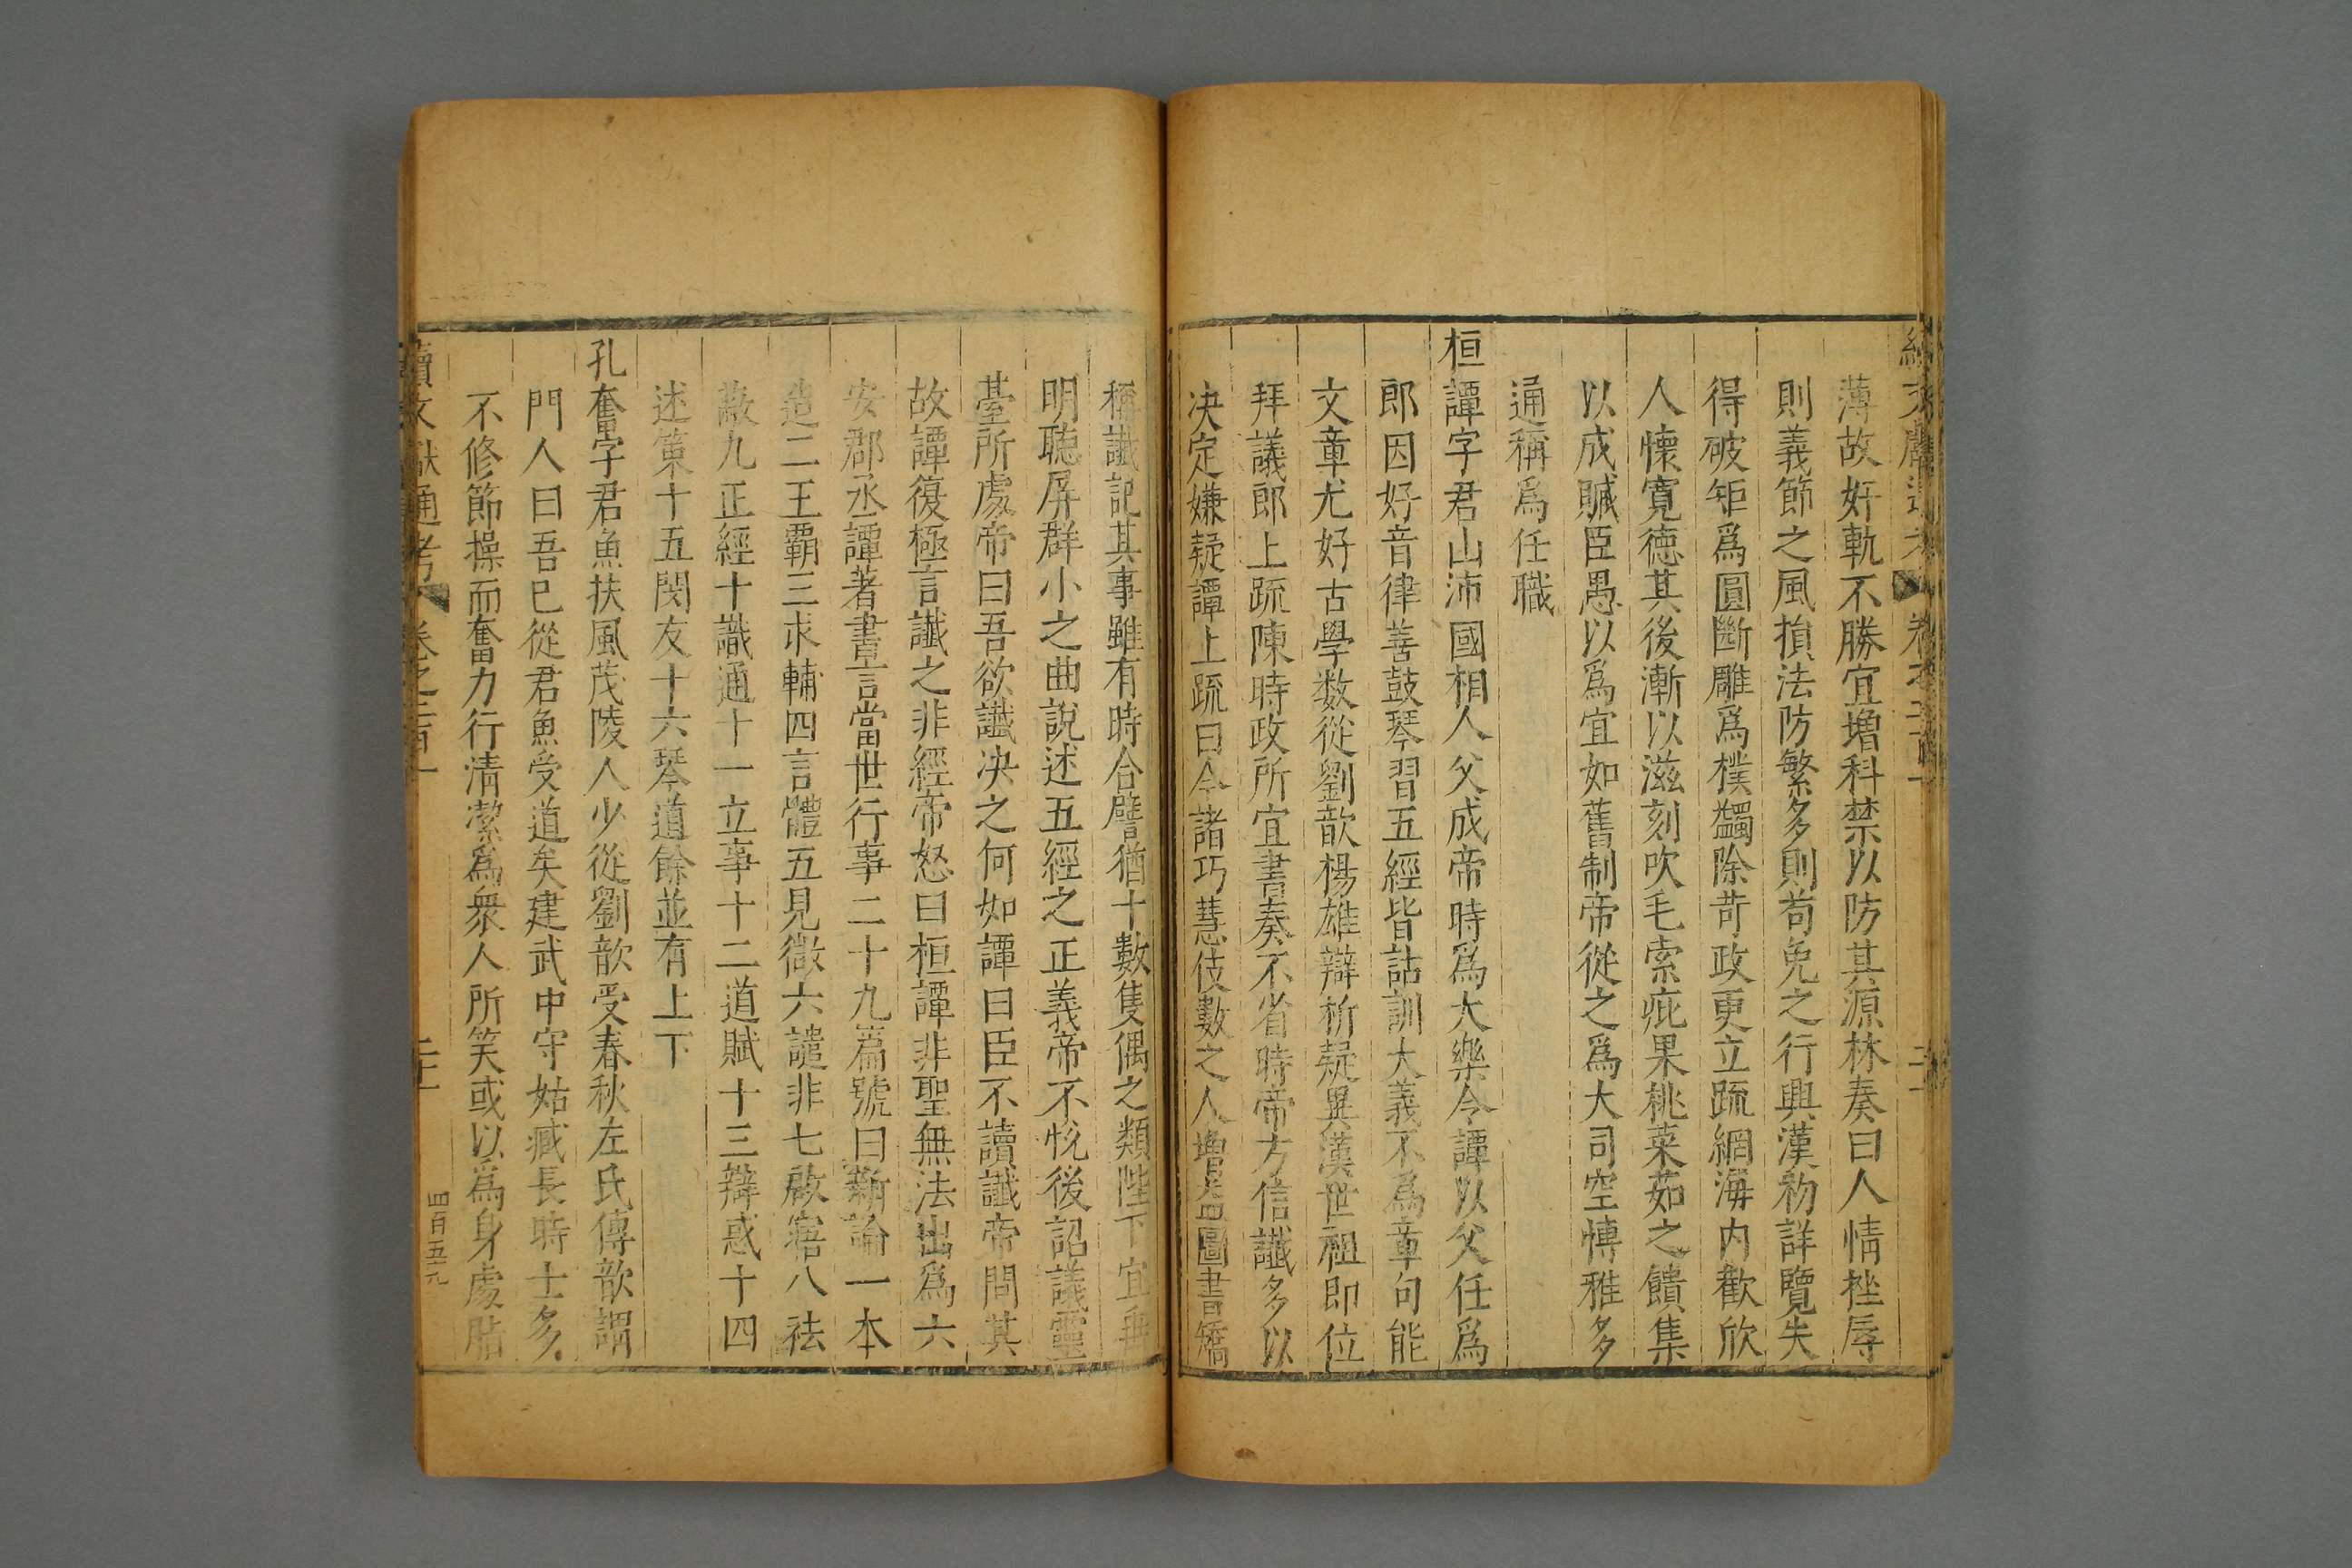 薄故奸軌不勝宜增科禁以防其源林奏曰人情挫辱
則義節之風損法防繁多則苟免之行興漢初詳覽失
得破矩爲圓斷雕爲樸蠲除苛政更立疏網海内歡欣
人懷寬徳其後漸以滋刻吹毛索疵果桃菜茹之饋集
以成贓臣愚以爲宜如舊制帝從之爲大司空博雅多
通稱爲任職
桓譚字君山沛國相人父成帝時爲大樂令譚以父任爲
郎因好音律善鼓琴習五經皆詁訓大義不爲章句能
文章尤好古學数從劉歆楊雄辯析疑異漢世祖即位
拜議郎上疏陳時政所宜書奏不省時帝方信讖多以
决定嫌疑譚上疏曰今諸巧慧伎數之人增益圖書矯
稱讖記其事雖有時合譬猶十數隻偶之類陛下宜無
明聴屏群小之曲說述五經之正義帝不悅後詔議靈
臺所處帝曰吾欲讖决之何如譚曰臣不讀讖帝問其
故譚復極言讖之非經帝怒曰桓譚非聖無法出爲六
安郡丞譚著書言當世行事二十九篇號曰新論一本
造二王覇三求輔四言體五見徵六譴非七啟寤八祛
蔽九正經十識通十一立事十二道賦十三辯惑十四
述策十五閔友十六琴道餘並有上下
孔奮字君魚扶風茂陵人少從劉歆受春秋左氏傳歆謂
門人曰吾已從君魚受道矣建武中守姑臧長時士多
不修節操而奮力行清潔爲衆人所笑或以爲身處脂
續文献通考 卷之二百一 二十一 四百五十九